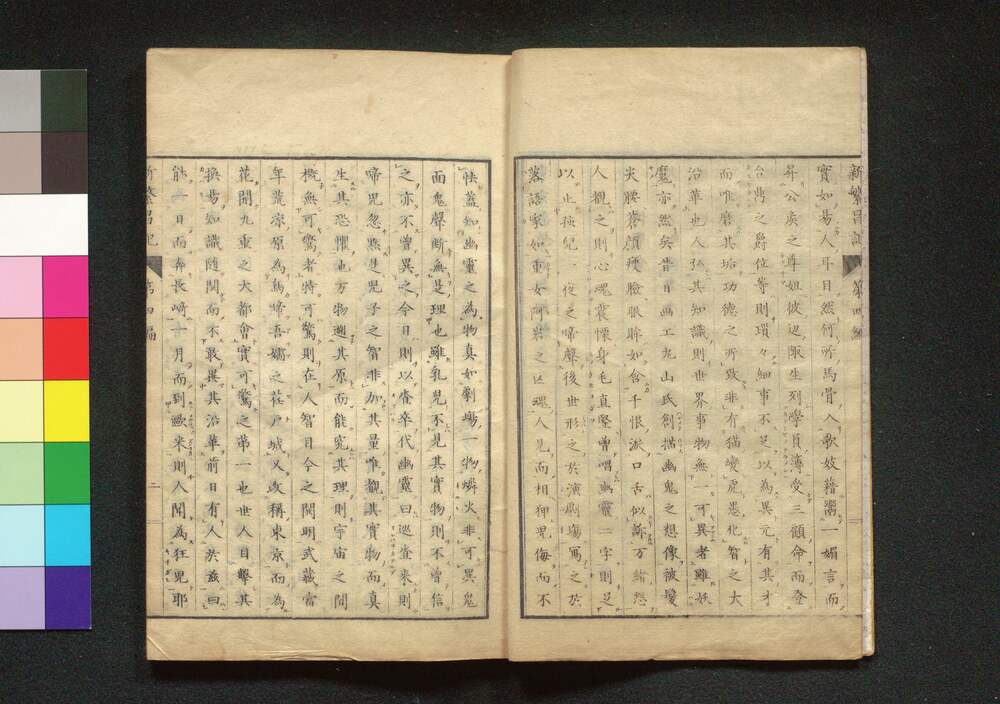 新繁昌記 第四編
實如易人耳目然何所馬骨人歌妓藉嬌一媚言而
昇公矦之尊姐彼迅取生列學員薄受三領命而登
台鼎之爵位等則瑣々細事不足以為異元有其才
而唯磨其垢功德之所致非有猫變虎惡化智之大
沿革也人弘其知識則世界事物無一可異者雖妖
魔亦然矣昔日画工丸山氏創描幽鬼之想像被髮
尖腰蒼顔瘦臉眼眸如含千恨涙口舌似訴万緒怨
人観之則心魂震慄身毛直竪曽唱幽靈二字則足
以止孩兒一夜之啼聲後世形之於演劇塲寫之於
落語家如重女阿岩之亡魂人見而相狎児侮而不
怯蓋知幽靈之為物真如劇塲一物燐火非可異鬼
面鬼聲断無是理也雖乳兒不見其實物則不曽信
之亦不曽異之今日則以査卒代幽靈曰巡査来則
啼児忽黙是児子之智非加其量唯観其實物而真
生其恐懼也万物遡其原而能究其理則宇宙之間
概無可驚者特可驚則在人智目今之開明武藏當
年荒寥原為鳥啼吾嬬之荏戸城又改稱東京而為
花開九重之大都會實可驚之第一也世人目擊其
換昜知識随開而不敢異其沿革前日有人於玆曰
能一日而奔長﨑一月而到歐米則人聞為狂児耶
新繁昌記 第四編 二